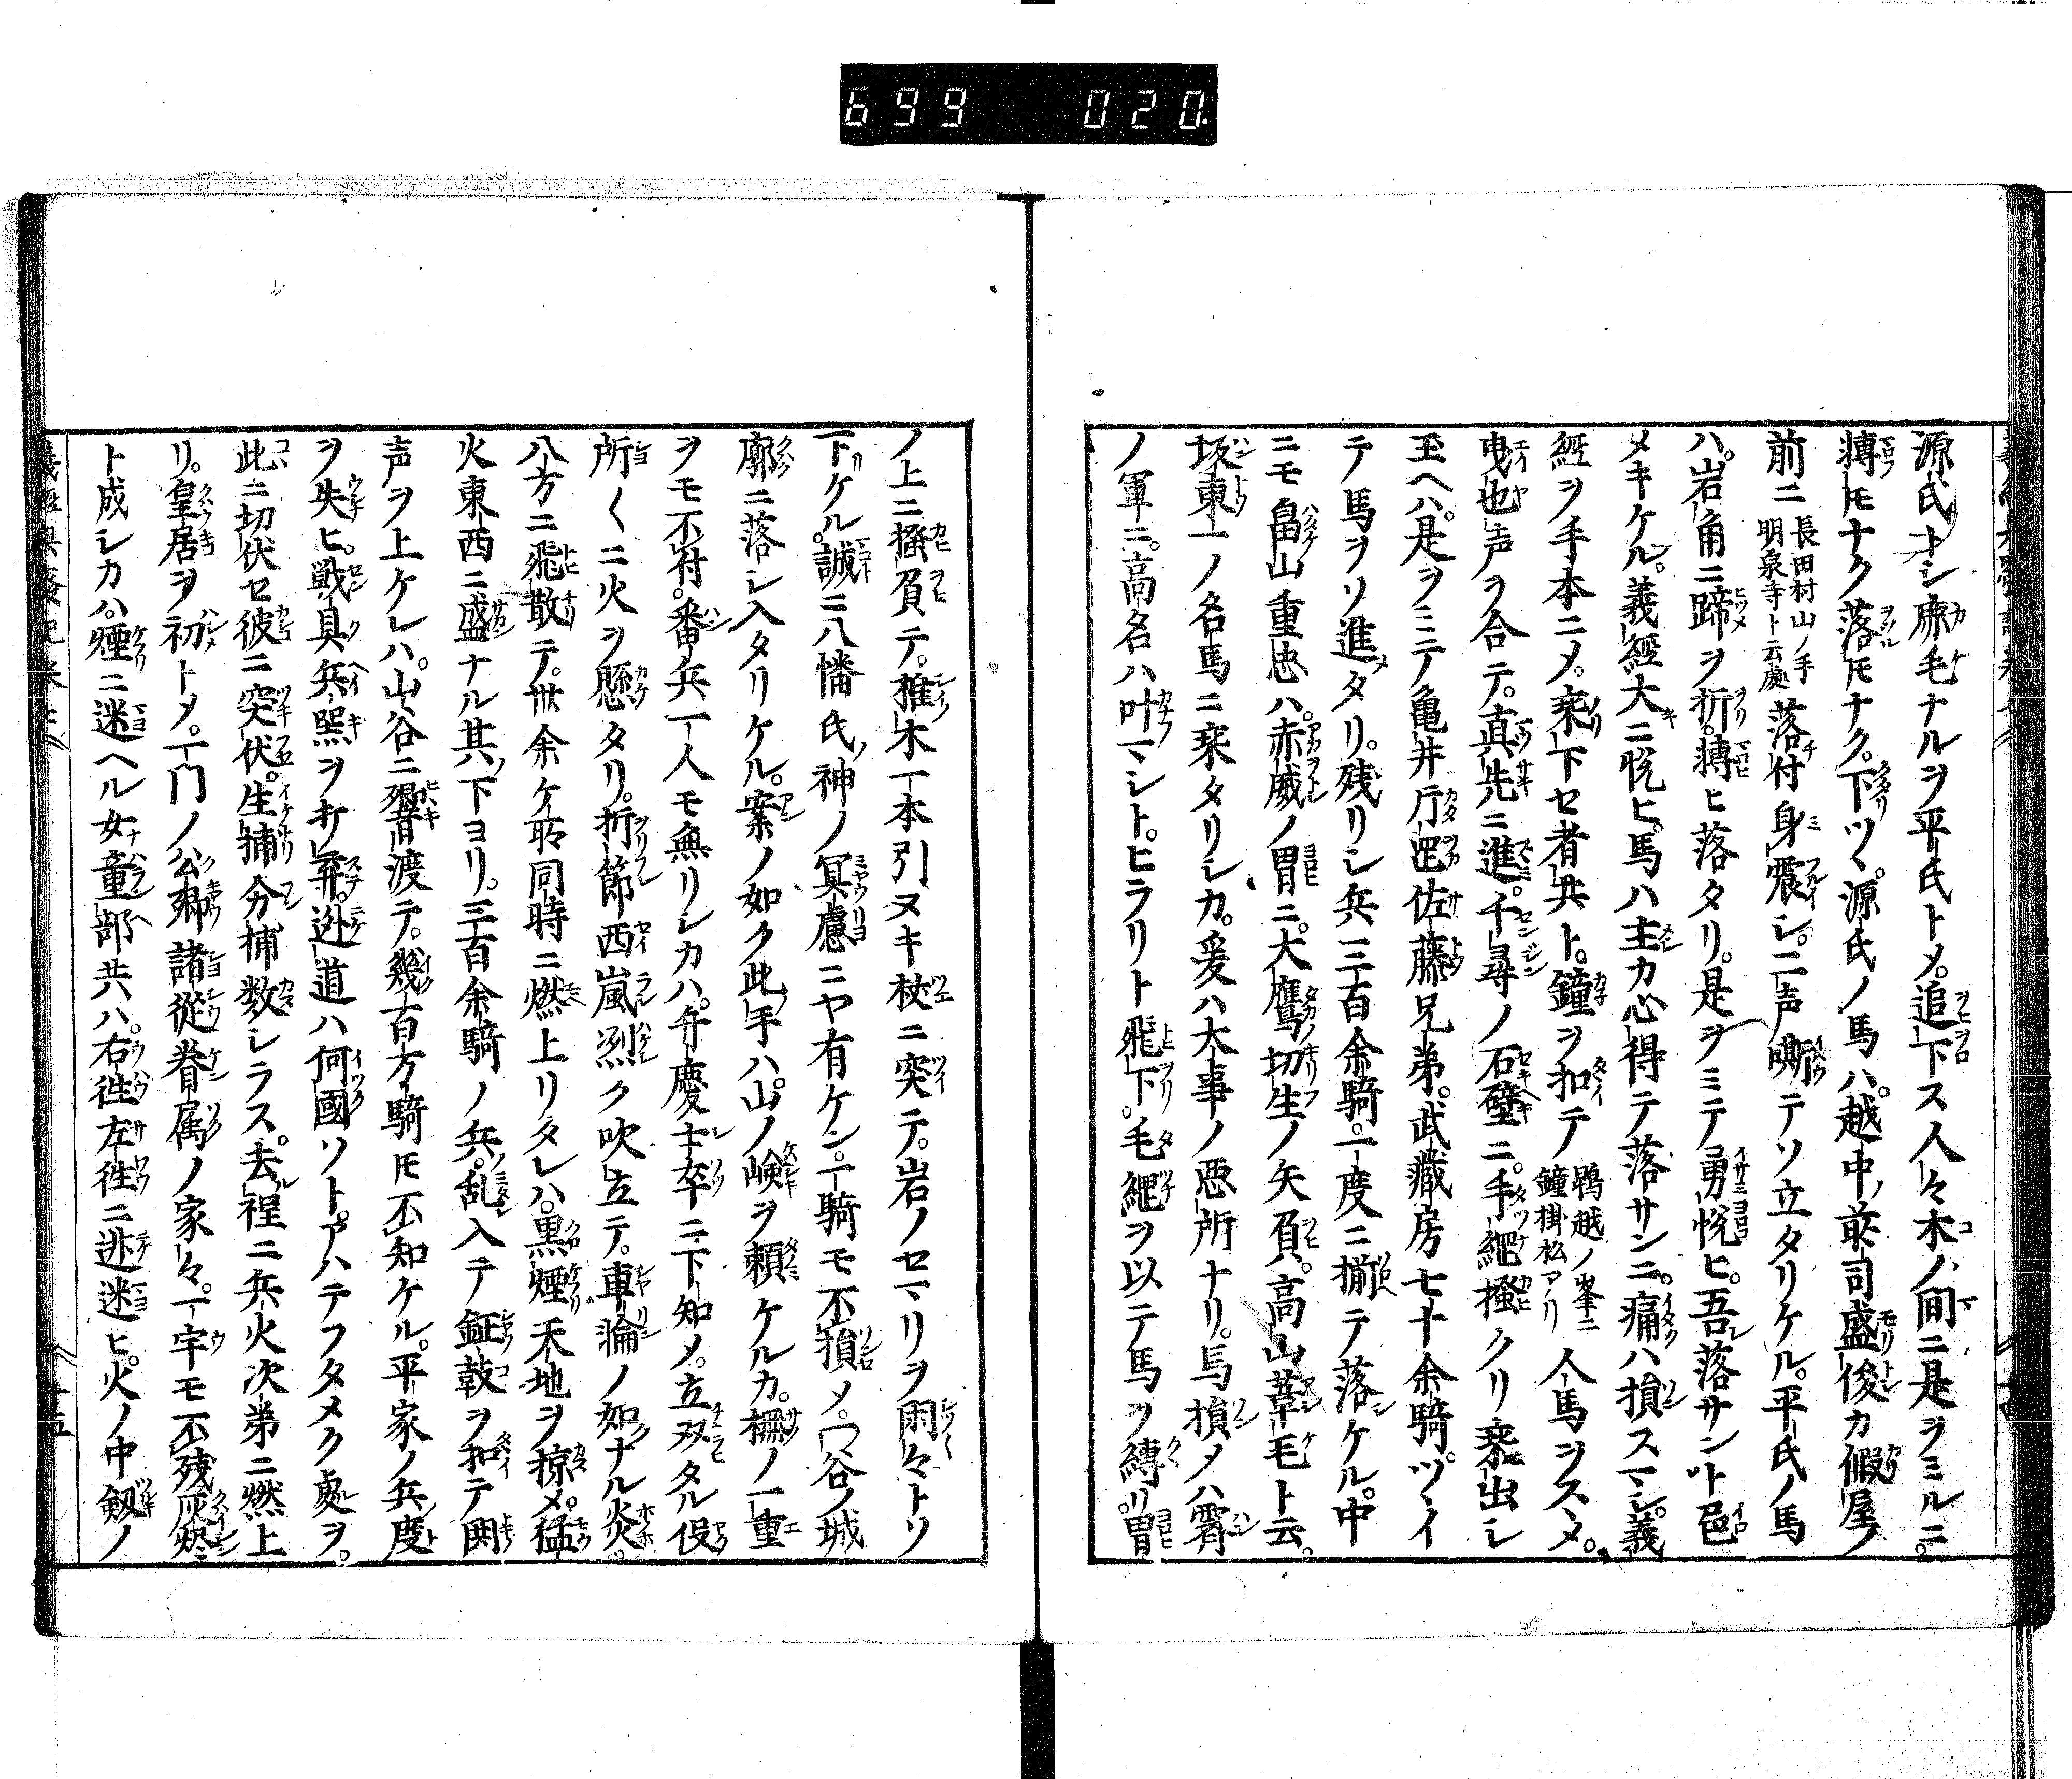 699 020.
源氏トシ鹿毛ナルヲ平氏トメ。追下ス人々木ノ間ニ是ヲミルニ。
搏モナク落モナク。下ツヽ。源氏ノ馬ハ。越中前司盛俊カ假屋ノ
前ニ
長田村山ノ手
明泉寺ト云處
落付身震シ。二声嘶テソ立タリケル。平氏ノ馬
ハ。岩角ニ蹄ヲ折。搏ヒ落タリ。是ヲミテ勇悦ヒ。吾落サント色
メキケル。義經大ニ悦ヒ。馬ハ主カ心得テ落サンニ。痛ハ損スマシ。義
經ヲ手本ニメ。乗下セ者共ト。鐘ヲ扣テ
鵯越ノ峯ニ
鐘掛松アリ
人馬ヲスヽメ。
曳也声ヲ合テ。真先ニ進。千尋ノ石壁ニ。手綱掻クリ乗出シ
玉ヘハ。是ヲミテ亀井片岡佐藤兄弟。武蔵房七十余騎。ツヽイ
テ馬ヲソ進タリ。残リシ兵三百余騎。一度ニ揃テ落シケル。中
ニモ畠山重忠ハ。赤威ノ冑ニ。大鷹切生ノ矢負。高山葦毛ト云。
坂東一ノ名馬ニ乗タリシカ。爰ハ大事ノ悪所ナリ。馬損メハ霄
ノ軍ニ。高名ハ叶マシト。ヒラリト飛下。毛綱ヲ以テ馬ヲ縛リ。冑
ノ上ニ掻負テ。椎木一本引ヌキ杖ニ突テ。岩ノセマリヲ閑々トソ
下ケル。誠ニ八幡氏ノ神ノ冥慮ニヤ有ケン。一騎モ不損メ。一谷ノ城
廓ニ落シ入タリケル。案ノ如ク此手ハ山ノ嶮ヲ頼ケルカ。柵ノ一重
ヲモ不付。番兵一人モ無リシカハ。弁慶士卒ニ下知メ。立双タル役
所〱ニ火ヲ懸タリ。折節西嵐烈ク吹立テ。車論ノ如ナル炎。
八方ニ飛散テ。卅余ケ所同時ニ燃上リタレハ。黒煙天地ヲ掠メ。猛
火東西ニ盛ナル其下ヨリ。三百余騎ノ兵。乱入テ鉦鼓ヲ扣テ関
声ヲ上ケレハ。山谷ニ響渡テ。幾百万騎モ不知ケル。平家ノ兵度
ヲ失ヒ。戦具兵器ヲ打弃。迯道ハ何國ソト。アハテフタメク處ヲ。
此ニ切伏セ彼ニ突伏。生捕分捕数シラス。去程ニ兵火次第ニ燃上
リ。皇居ヲ初トメ。一門ノ公卿諸從眷属ノ家々。一宇モ不残灰燼
ト成シカハ。煙ニ迷ヘル女童部共ハ。右徃左徃ニ迯迷ヒ。火ノ中劔ノ